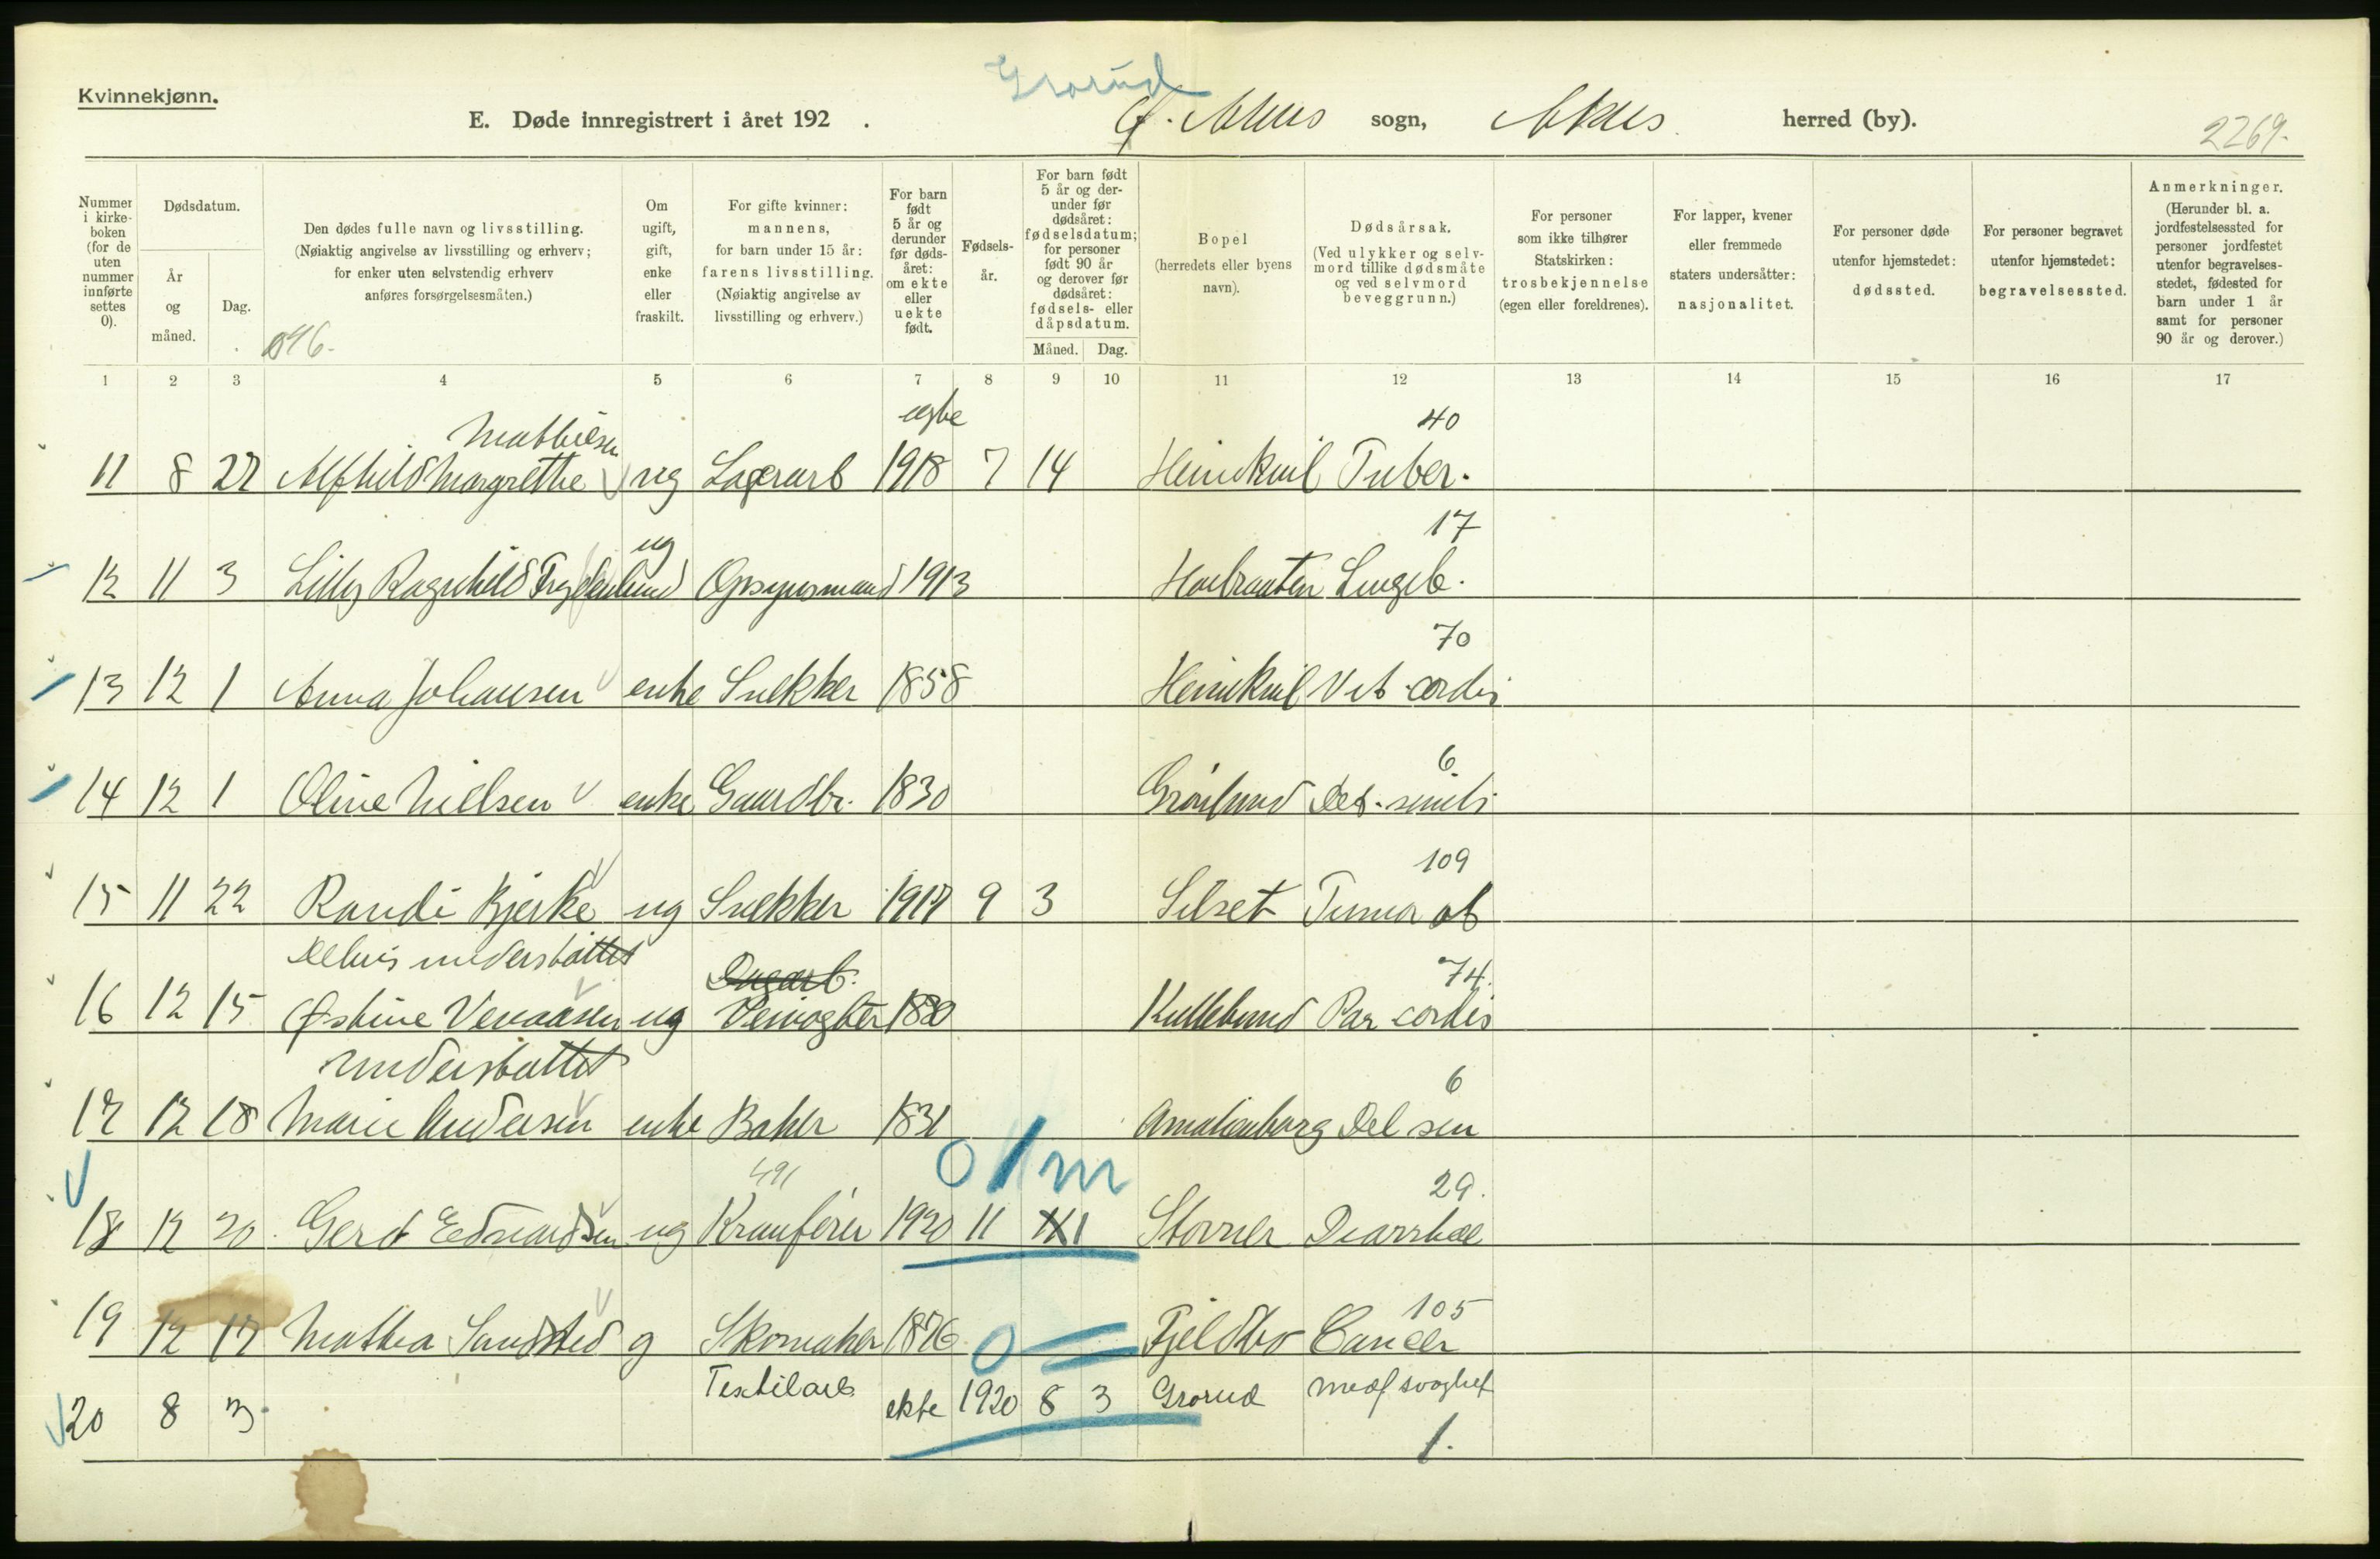 Kvinnekjønn.
Grorud
E. Døde innregistrert i året 192 . Ø. Akers sogn, Akers herred (by).
2269.
Nummer i kirke-boken (for de uten nummer innførte settes 0).
Dødsdatum.
År og måned.
Dag.
Den dødes fulle navn og livsstilling.
(Nøiaktig angivelse av livsstilling og erhverv;
for enker uten selvstendig erhverv
anføres forsørgelsesmåten.)
Om ugift, gift, enke eller fraskilt.
For gifte kvinner:
mannens,
for barn under 15 år:
farens livsstilling.
(Nøiaktig angivelse av
livsstilling og erhverv.)
For barn født 5 år og derunder før døds-året: om ekte eller uekte født.
Fødsels-år.
For barn født 5 år og der-under før dødsåret: fødselsdatum; for personer født 90 år og derover før dødsåret: fødsels- eller dåpsdatum.
Måned. Dag.
Bopel
(herredets eller byens
navn).
Dødsårsak.
(Ved ulykker og selv-
mord tillike dødsmåte
og ved selvmord
beveggrunn.)
For personer
som ikke tilhører
Statskirken:
trosbekjennelse
(egen eller foreldrenes).
For lapper, kvener
eller fremmede
staters undersåtter:
nasjonalitet.
For personer døde
utenfor hjemstedet:
dødssted.
For personer begravet
utenfor hjemstedet:
begravelsessted.
Anmerkninger.
(Herunder bl. a.
jordfestelsessted for
personer jordfestet
utenfor begravelses-
stedet, fødested for
barn under 1 år
samt for personer
90 år og derover.)
1 2 3 4 5 6 7 8 9 10 11 12 13 14 15 16 17
Mathiesen 40
11 8 27 Alfhild Margrethe ug Lagerarb 1918 7 14 Tuber.
ug 17
12 11 3 Lilly Ragnhild Opsynsmand 1913 Lungeb.
70
13 12 1 Anna Johansen enke Snekker 1858 Vit. cordis
6
14 12 1 Oline Nielsen enke Gaardbr. 1830 Grønlund Deb. senilis
109
15 11 22 Randi Bjerke ug Snekker 1917 9 3 Tumor ab
Delvis understøttet Dagarb. 74.
16 12 15 Østine ug Veivogter 1880 Par cordis
understøttet 6
17 12 18 Marie Andersen enke Baker 1831 Amalienborg Deb sen
0 1 m
491 29.
18 12 20 Gerd Edvardsen ug Kranfører 1920 11 1 Stovner
105
19 12 17 Mathea Sandsted g Skomaker 1876 0 Fjeldbo Cancer
20 8 3 Textilarb ekte 1920 8 3 Grorud medf svaghet
1.